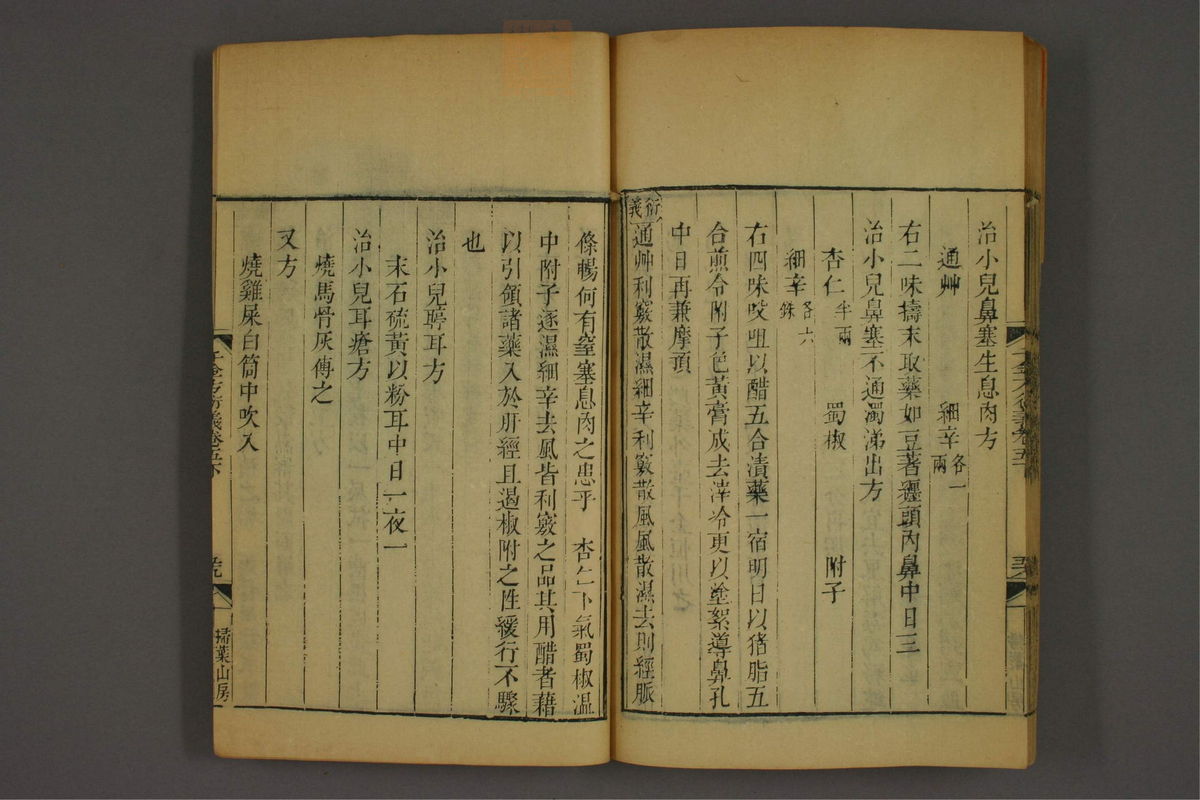 治小兒鼻塞生息肉方
通艸 細辛各一兩
右二味擣末取藥如豆著纒頭內鼻中日三
治小兒鼻塞不通濁涕出方
杏仁半兩 蜀椒 附子
細辛各六銖
右四味㕮咀以醋五合漬藥一宿明日以猪脂五
合煎令附子色黃膏成去滓冷更以塗絮導鼻孔
中日再兼摩頂
衍義
通艸利竅散濕細辛利竅散風風散濕去則經脈
條暢何有窒塞息肉之患乎 杏仁下氣蜀椒溫
中附子逐濕細辛去風皆利竅之品其用醋者藉
以引領諸藥入於肝經且遏椒附之性緩行不驟
也
治小兒聤耳方
末石硫黃以粉耳中日一夜一
治小兒耳瘡方
燒馬骨灰傅之
又方
燒雞屎白筒中吹入
千金方衍義卷五下
掃葉山房